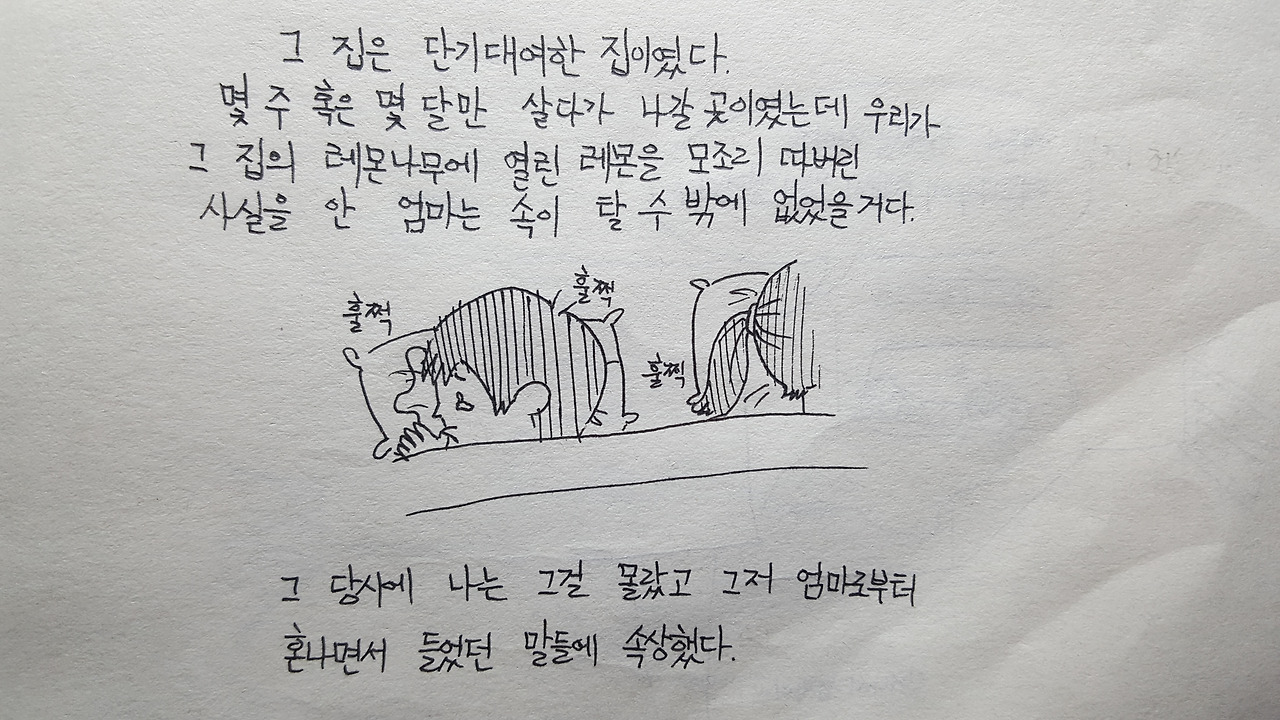 그 집은 단기대여한 집이였다.
몇 주 혹은 몇 달만 살다가 나갈 곳이였는데 우리가
그 집의 레몬나무에 열린 레몬을 모조리 따버린
사실을 안 엄마는 속이 탈 수 밖에 없었을거다.
훌쩍
훌쩍
훌쩍
그 당사에 나는 그걸 몰랐고 그저 엄마로부터
혼나면서 들었던 말들에 속상했다.